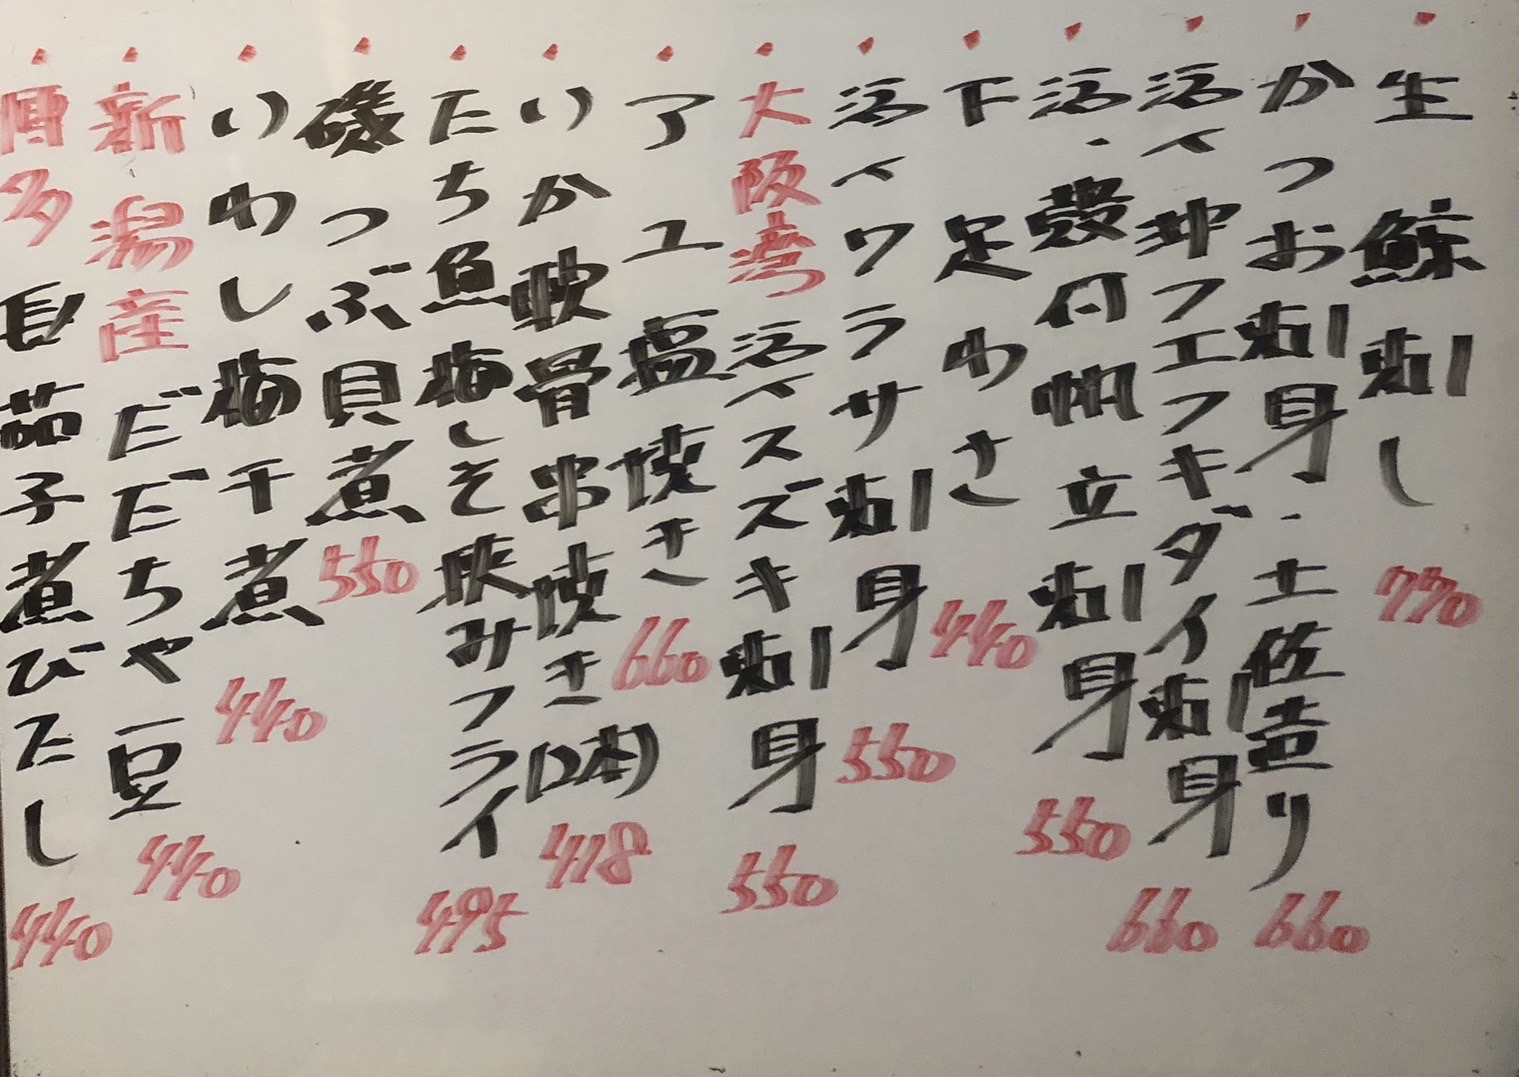 生鯨刺し 770
かつお刺身・土佐造り 660
活〆沖フエフキダイ刺身 660
活・殻付帆立刺身 550
下足わさ 440
活〆ワラサ刺身 550
大阪湾活〆スズキ刺身 550
アユ塩焼き 660
いか軟骨串焼き(2本) 418
たち魚梅しそ挟みフライ 495
磯つぶ貝煮 550
いわし梅干煮 440
新潟産だだちゃ豆 440
博多長茄子煮びたし 440